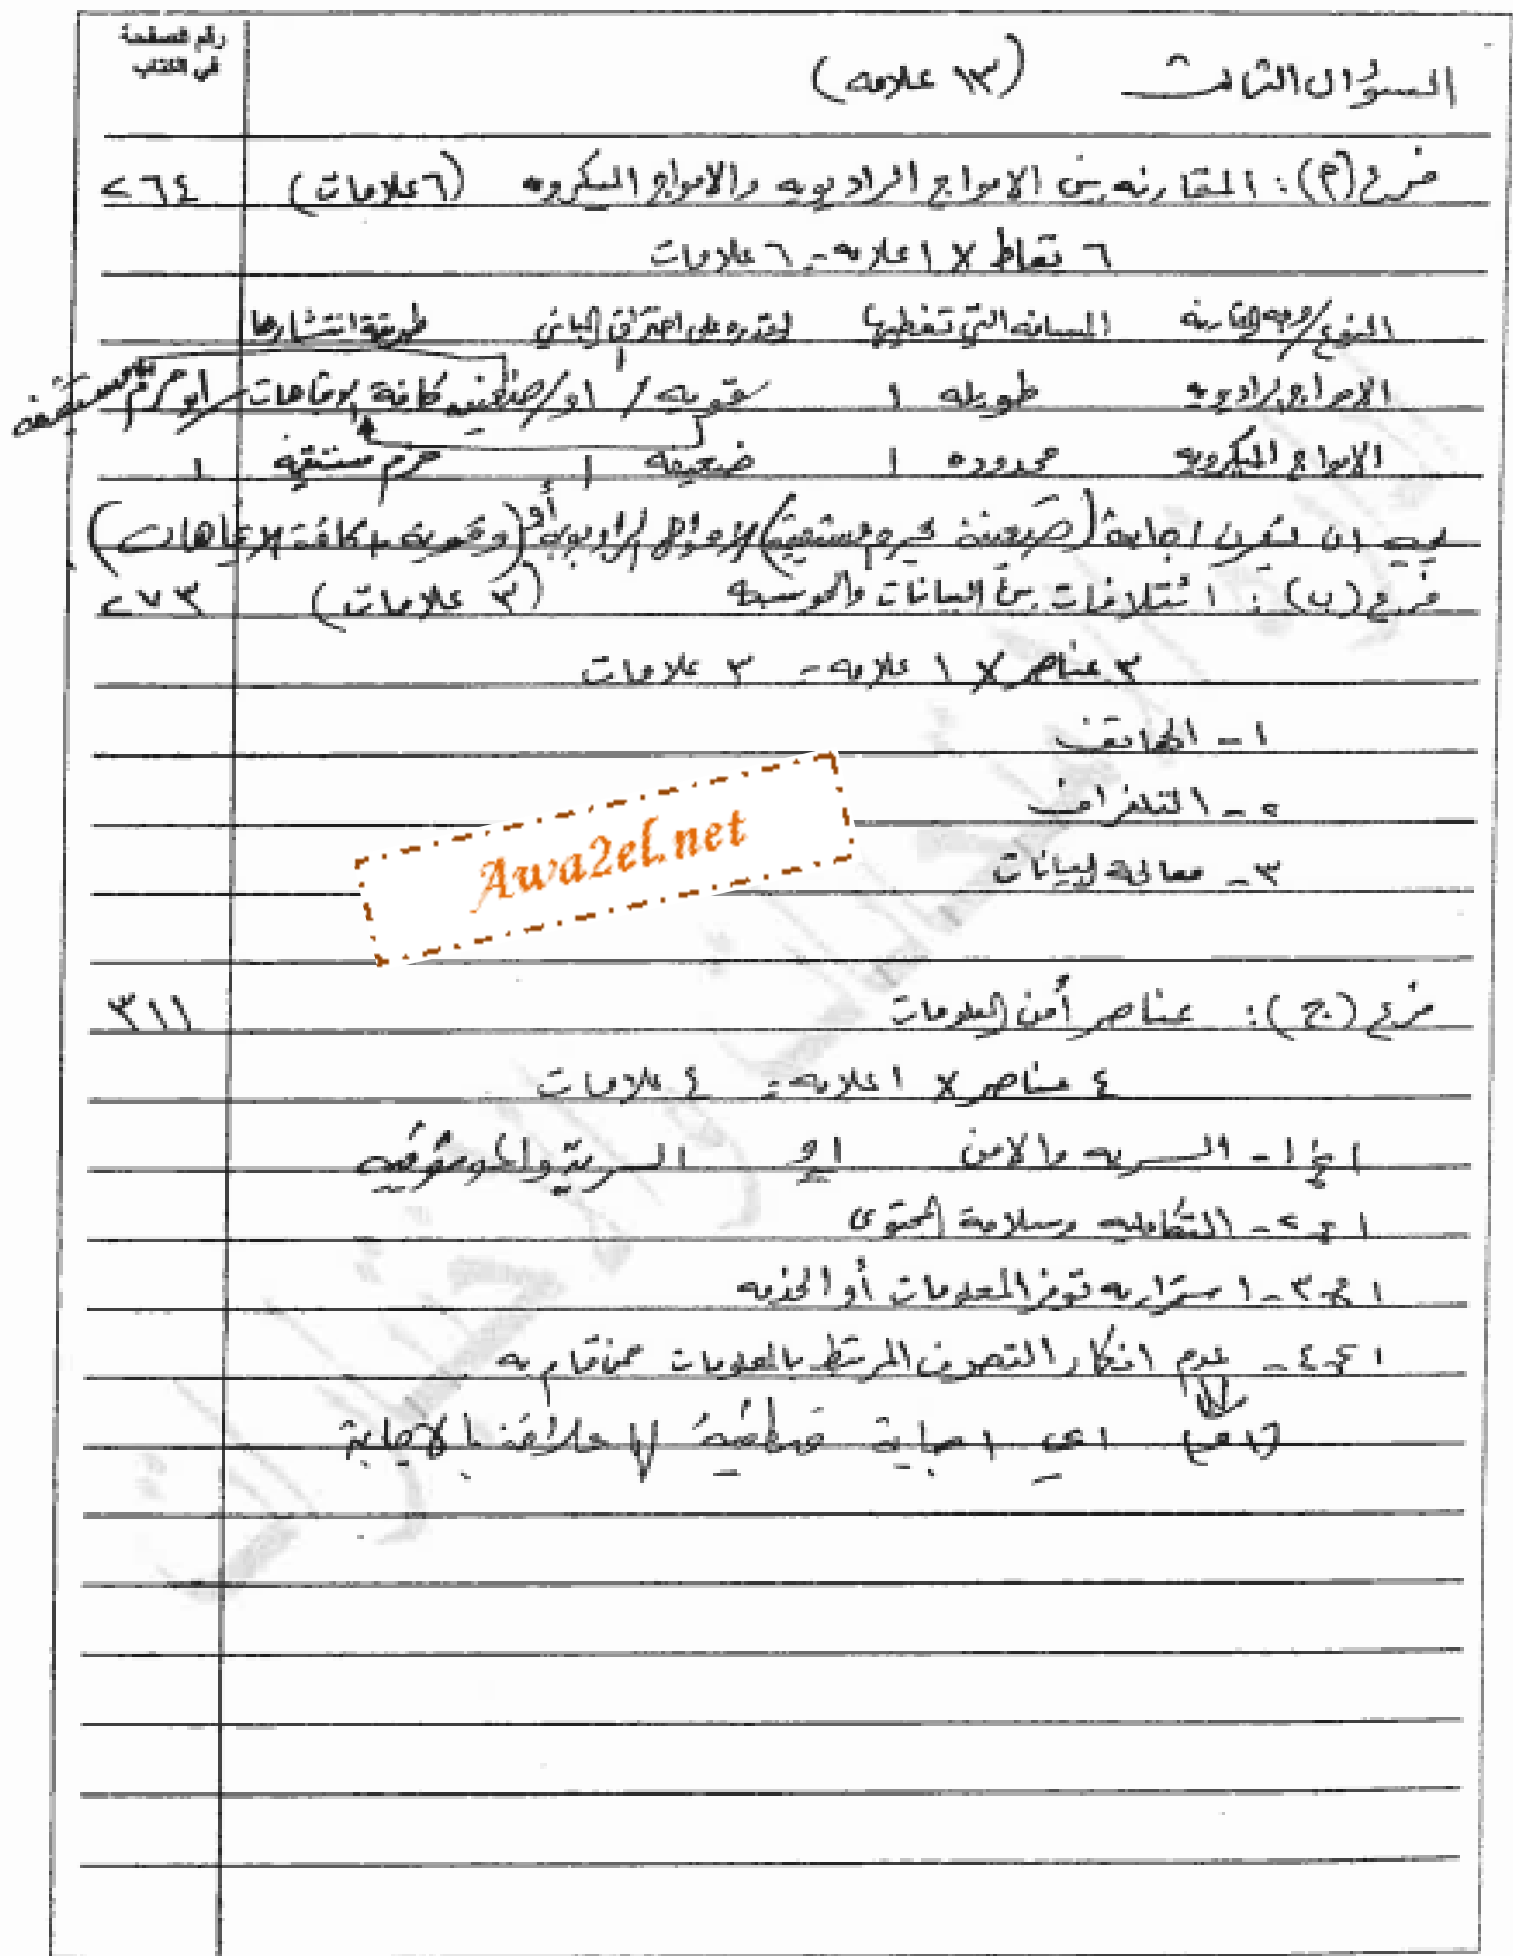 رقم الصفحة
في الكتاب
السؤال الثالث (١٣ علامه)
فرع (أ) : المقارنه بين الامواج الراديويه والامواج الميكرويه (٦ علامات) ٢٦٤
٦ نقاط × ١ علامه = ٦ علامات
النوع/وجه المقارنه المسافه التي تغطيها القدره على اختراق المباني طريقة انتشارها
الامواج الراديويه طويله ١ قويه / او/ضعيفه كافة الاتجاهات او حزم مستقيمه
الامواج الميكرويه محدوده ١ ضعيفه ١ حزم مستقيمه ١
يجب ان تكون اجابة (ضعيفة حزم مستقيمة) للامواج الراديويه أو (وقويه كافة الاتجاهات)
فرع (ب) : ائتلافات بين البيانات والحوسبه (٣ علامات) ٢٧٣
٣ عناصر × ١ علامه = ٣ علامات
١ - الهاتف
٢ - التلغراف
٣ - معالجة البيانات
Awa2el.net
فرع (ج) : عناصر أمن المعلومات ٣١١
٤ عناصر × ١ علامه = ٤ علامات
١ - السريه والامن او السرية والموثوقيه
٢ - التكامليه وسلامة المحتوى
٣ - استمراريه توفر المعلومات أو الخدمه
٤ - عدم انكار التصرف المرتبط بالمعلومات ممن قام به
اي اجابة لا علاقة بالاجابة